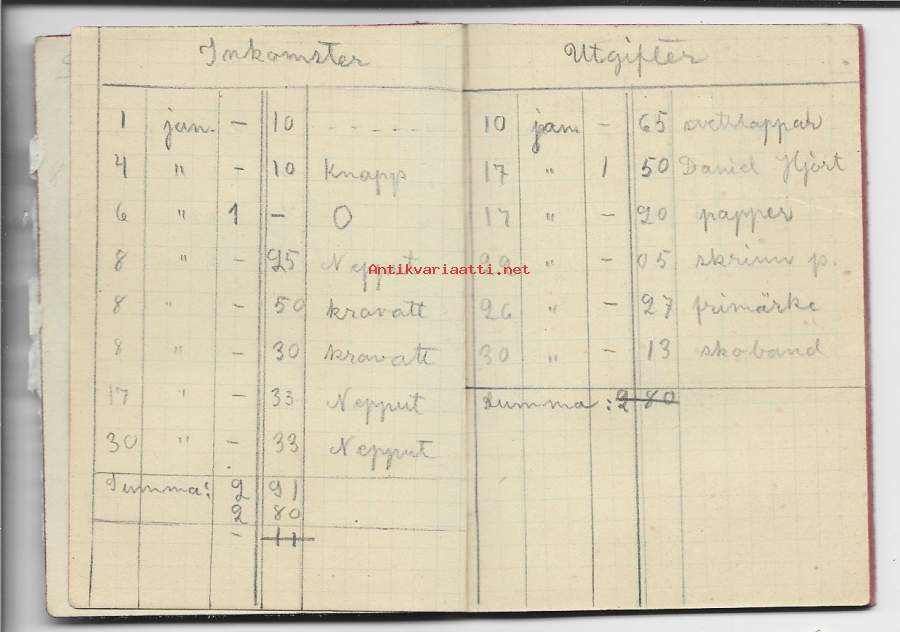 Inkomster
1 jan. - 10 - - - - - -
4 " - 10 Knapp
6 " 1 - O
8 " - 25 Nepput
8 " - 50 kravatt
8 " - 30 kravatt
17 " - 33 Nepput
30 " - 33 Nepput
Summa: 2 91
2 80
- 11
Utgifter
10 jan. - 65 svettlappar
17 " 1 50 David Hjort
17 " - 20 papper
22 " - 05 skrinn p.
26 " - 27 frimärke
30 " - 13 skoband
Summa: 2 80
Antikvariaatti.net